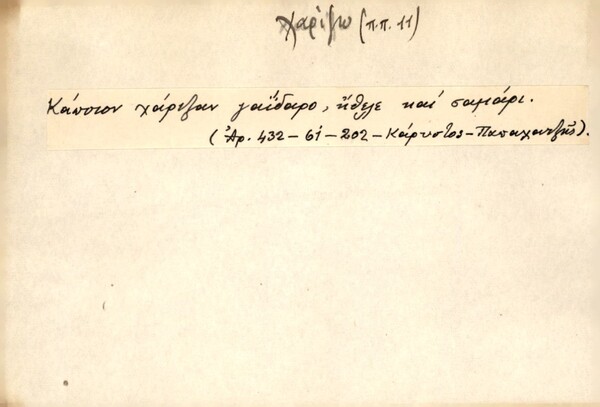 χαρίζω (π.π. 11)
Κάποιον χάριζαν γαΐδαρο, ἤθελε καί σαμάρι.
(Ἀρ. 432 – 61 – 202 – Κάρυστος – Παπαχατζῆς).